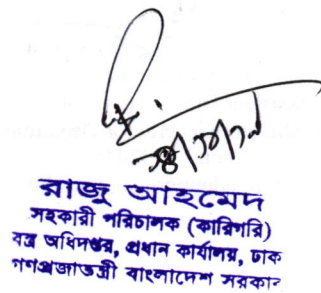 রাজু আহমেদ
সহকারী পরিচালক (কারিগরি)
বস্ত্র অধিদপ্তর, প্রধান কার্যালয়, ঢাক
গণপ্রজাতন্ত্রী বাংলাদেশ সরকার